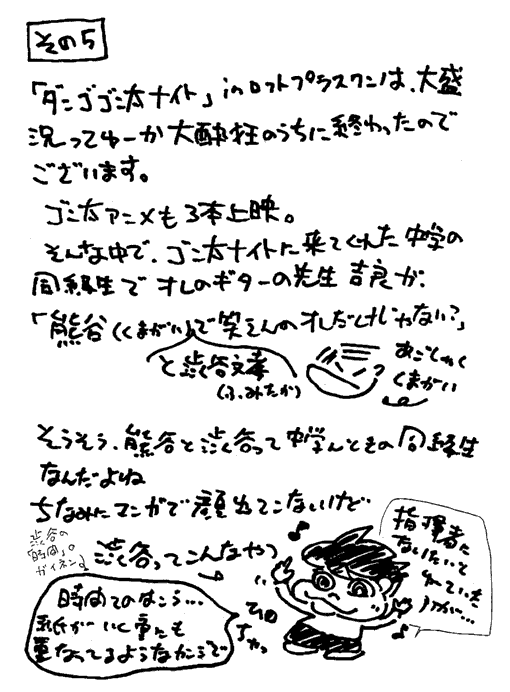 その5
「ダンゴゴン太ナイト」inロフトプラスワンは、大盛
況ってゆーか大酔狂のうちに終わったので
ございます。
ゴン太アニメも3本上映。
そんな中で、ゴン太ナイトに来てくれた中学の
同級生でオレのギターの先生吉良が、
「熊谷(くまがい)で笑えんのオレだけじゃない?」
と渋谷文孝
(ふみたか)
あごしゃく
くまがい
そうそう、熊谷と渋谷って中学んときの同級生
なんだよね
ちなみにマンガで顔出てこないけど
渋谷の
「時間」の
ガイネン
渋谷ってこんなやつ
指揮者に
なりたいと
言っていた
時間てのはこう…
紙がいく重にも
重なってるようなかんじで